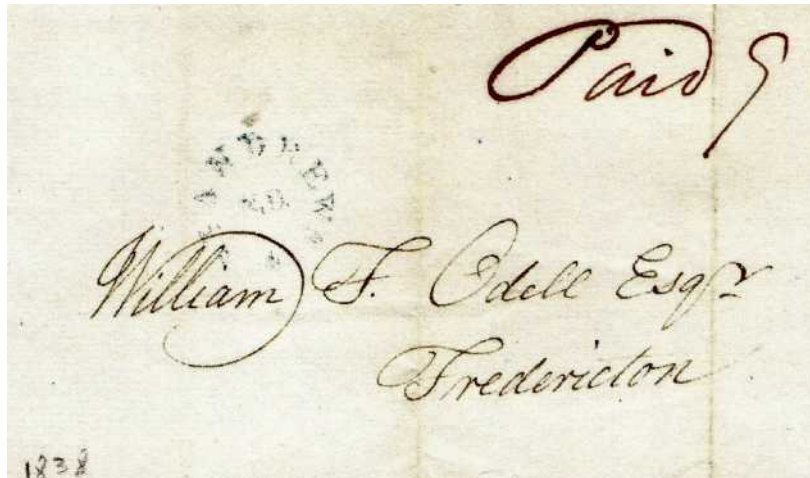 Paid 9
William F. Odell Esqr
Fredericton
1838